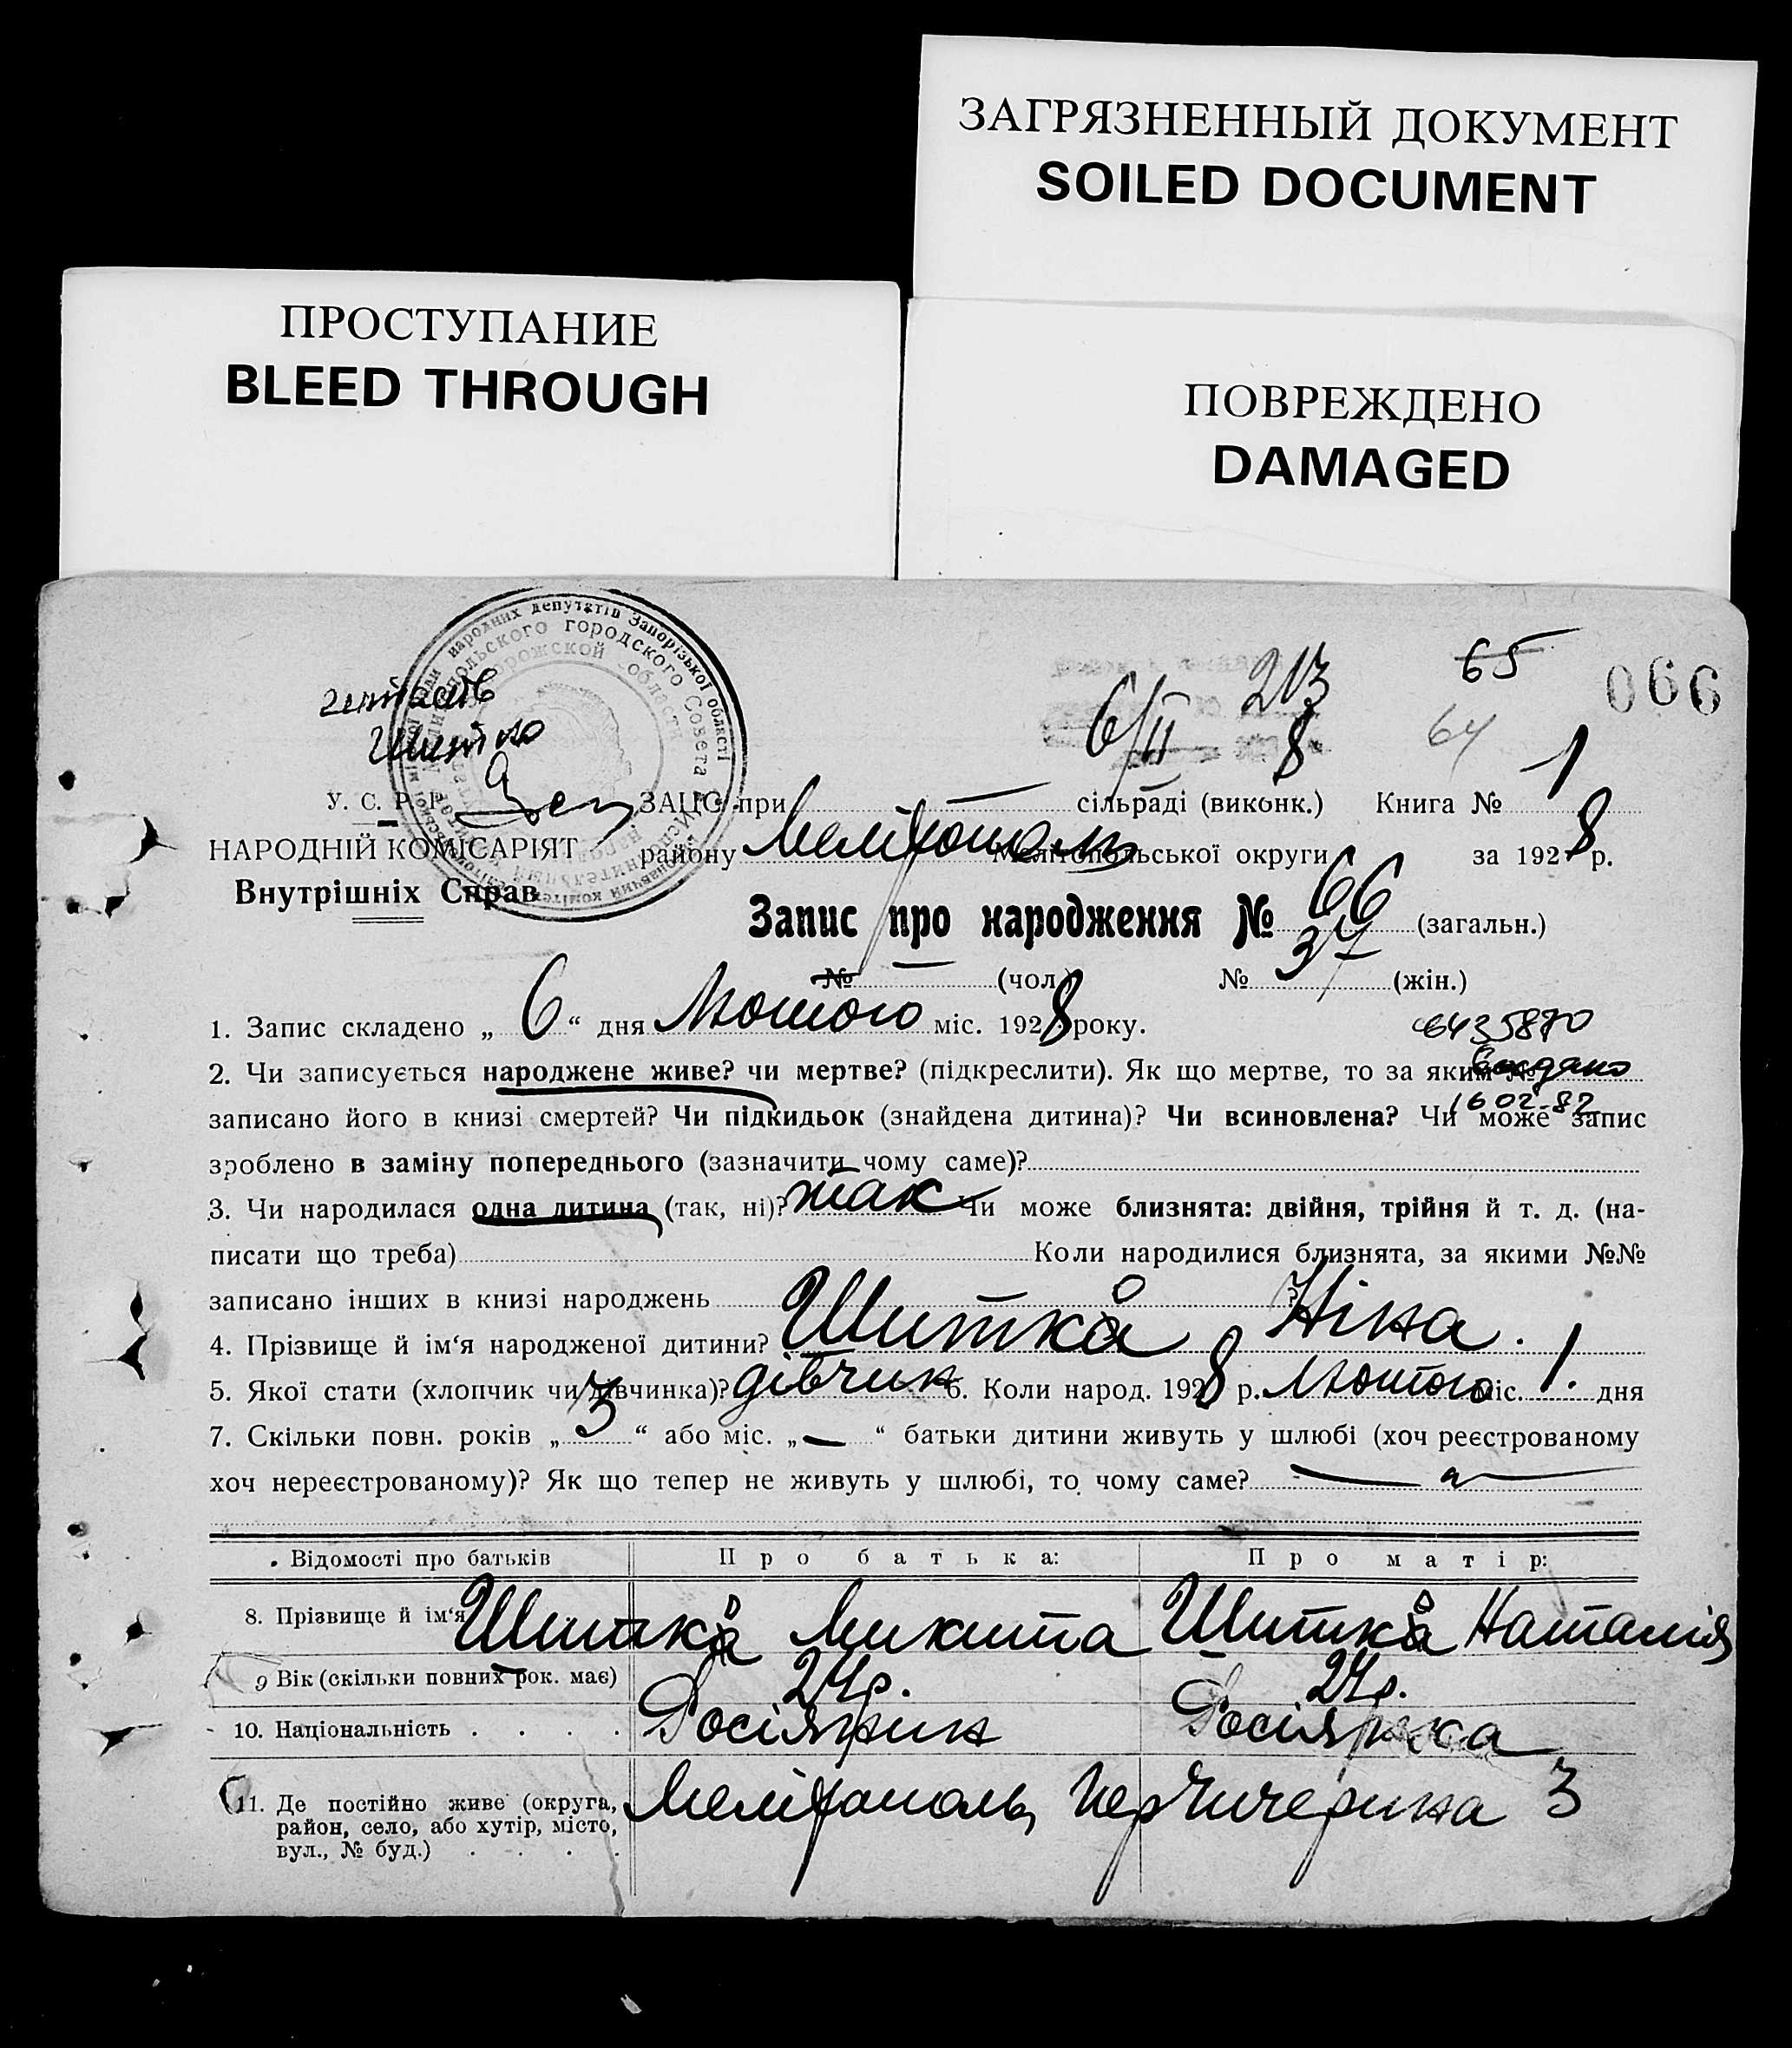 ЗАГРЯЗНЕННЫЙ ДОКУМЕНТ
SOILED DOCUMENT
ПРОСТУПАНИЕ
BLEED THROUGH
ПОВРЕЖДЕНО
DAMAGED
65
066
213
64
6/II 8
читать
Шитко
У. С. Р. Р.
ЗАЦС при — сільраді (виконк.) Книга № 1
НАРОДНІЙ КОМІСАРІЯТ
району Мелітополь Мелітопольської округи за 1928 р.
Внутрішніх Справ
Запис про народження № 66 (загальн.)
№ — (чол.) № 37 (жін.)
1. Запис складено „ 6 “ дня Лютого міс. 1928 року.
6435870
2. Чи записується народжене живе? чи мертве? (підкреслити). Як що мертве, то за яким №
1602-82
записано його в книзі смертей? Чи підкидьок (знайдена дитина)? Чи всиновлена? Чи може запис
зроблено в заміну попереднього (зазначити чому саме)?
3. Чи народилася одна дитина (так, ні)? так Чи може близнята: двійня, трійня й т. д. (на-
писати що треба) Коли народилися близнята, за якими №№
записано інших в книзі народжень ?
4. Прізвище й ім‘я народженої дитини? Шитко Ніна.
5. Якої стати (хлопчик чи дівчинка)? дівчин 6. Коли народ. 1928 р. Лютого міс. 1. дня
7. Скільки повн. років „ 3 “ або міс. „ — “ батьки дитини живуть у шлюбі (хоч реєстрованому
хоч нереєстрованому)? Як що тепер не живуть у шлюбі, то чому саме?
Відомості про батьків Про батька: Про матір:
8. Прізвище й ім‘я Шитко Микита Шитко Наталія
9 Вік (скільки повних рок. має) 24р. 24р.
10. Національність . . . . Росіянин Росіянка
11. Де постійно живе (округа, Мелітополь, пер Чичерина 3
район, село, або хутір, місто,
вул., № буд.) . . . .